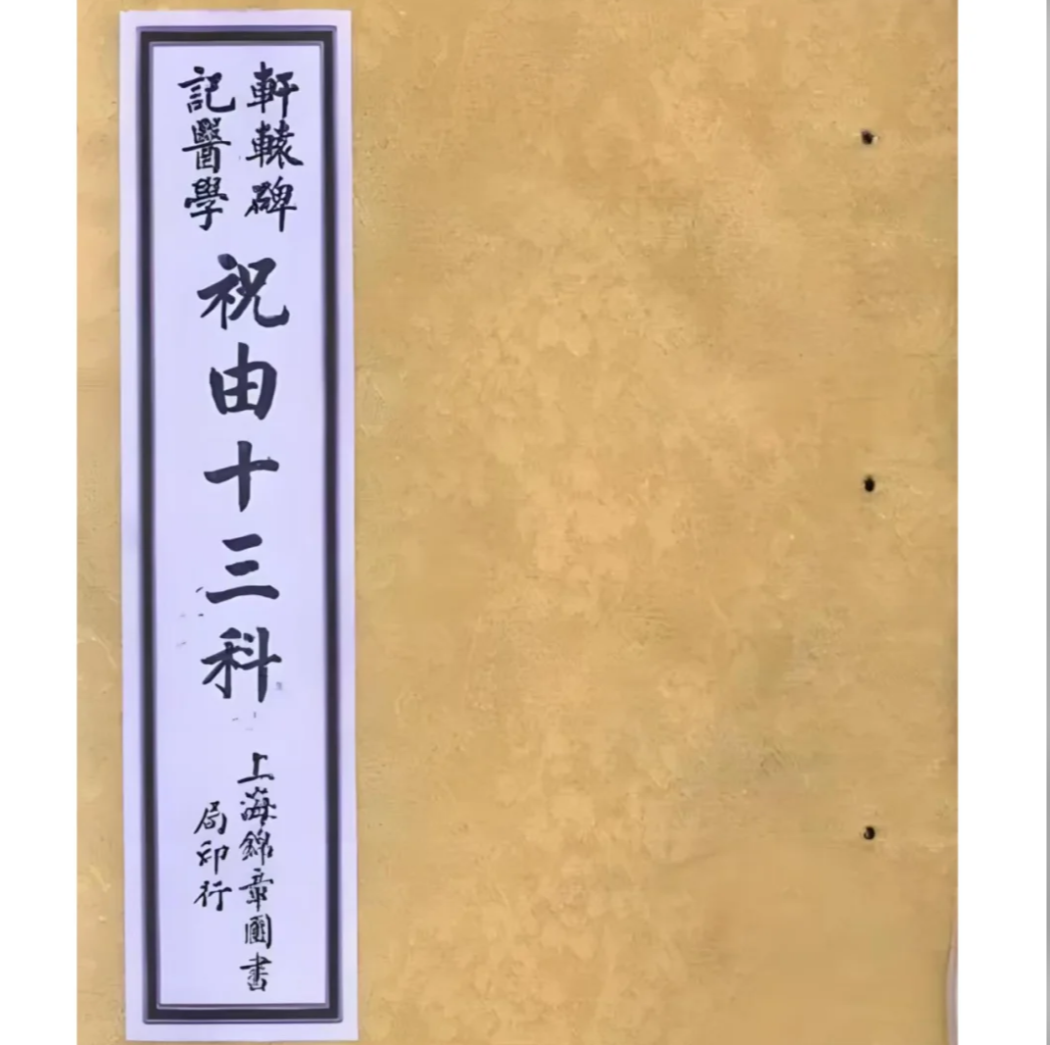 軒轅碑
記醫學
祝由十三科
上海錦章圖書
局印行